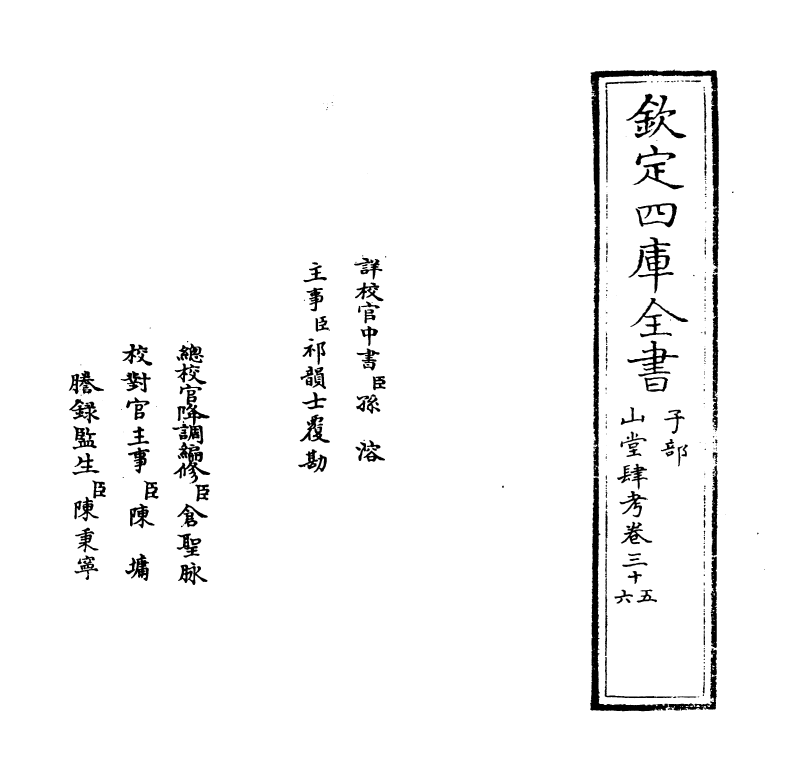 欽定四庫全書
子部
山堂肆考卷三十五六
詳校官中書臣孫溶
主事臣祁韻士覆勘
總校官降調編修臣倉聖脉
校對官主事臣陳墉
謄錄監生臣陳秉寧